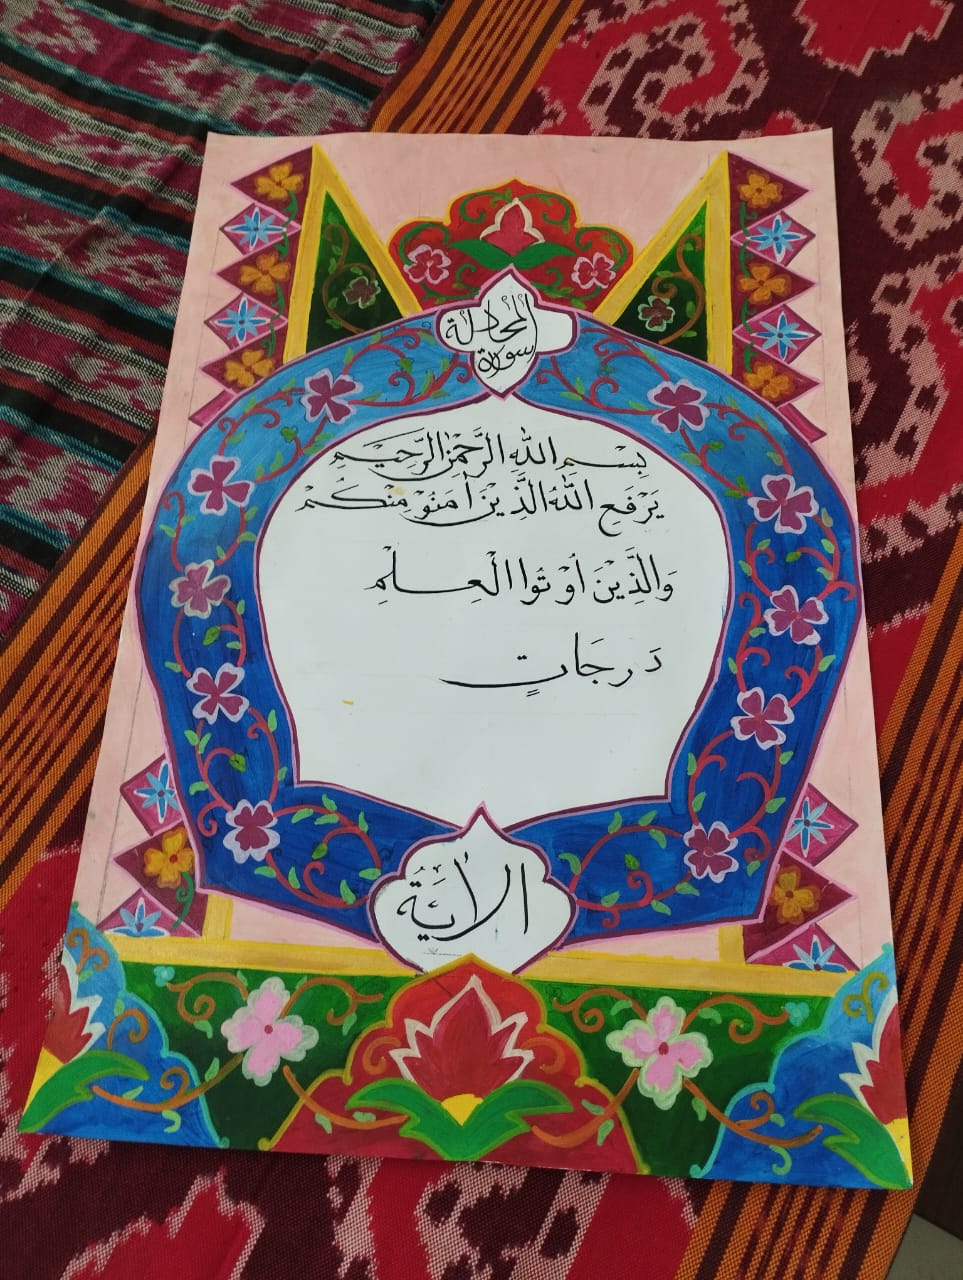 سورة
المجادلة
بِسْمِ اللهِ الرَّحْمٰنِ الرَّحِيْمِ
يَرْفَعِ اللهُ الَّذِيْنَ اٰمَنُوْ مِنْكُمْ
وَالَّذِيْنَ أُوْتُوا الْعِلْمِ
دَرَجَاتٍ
الاٰيَةُ